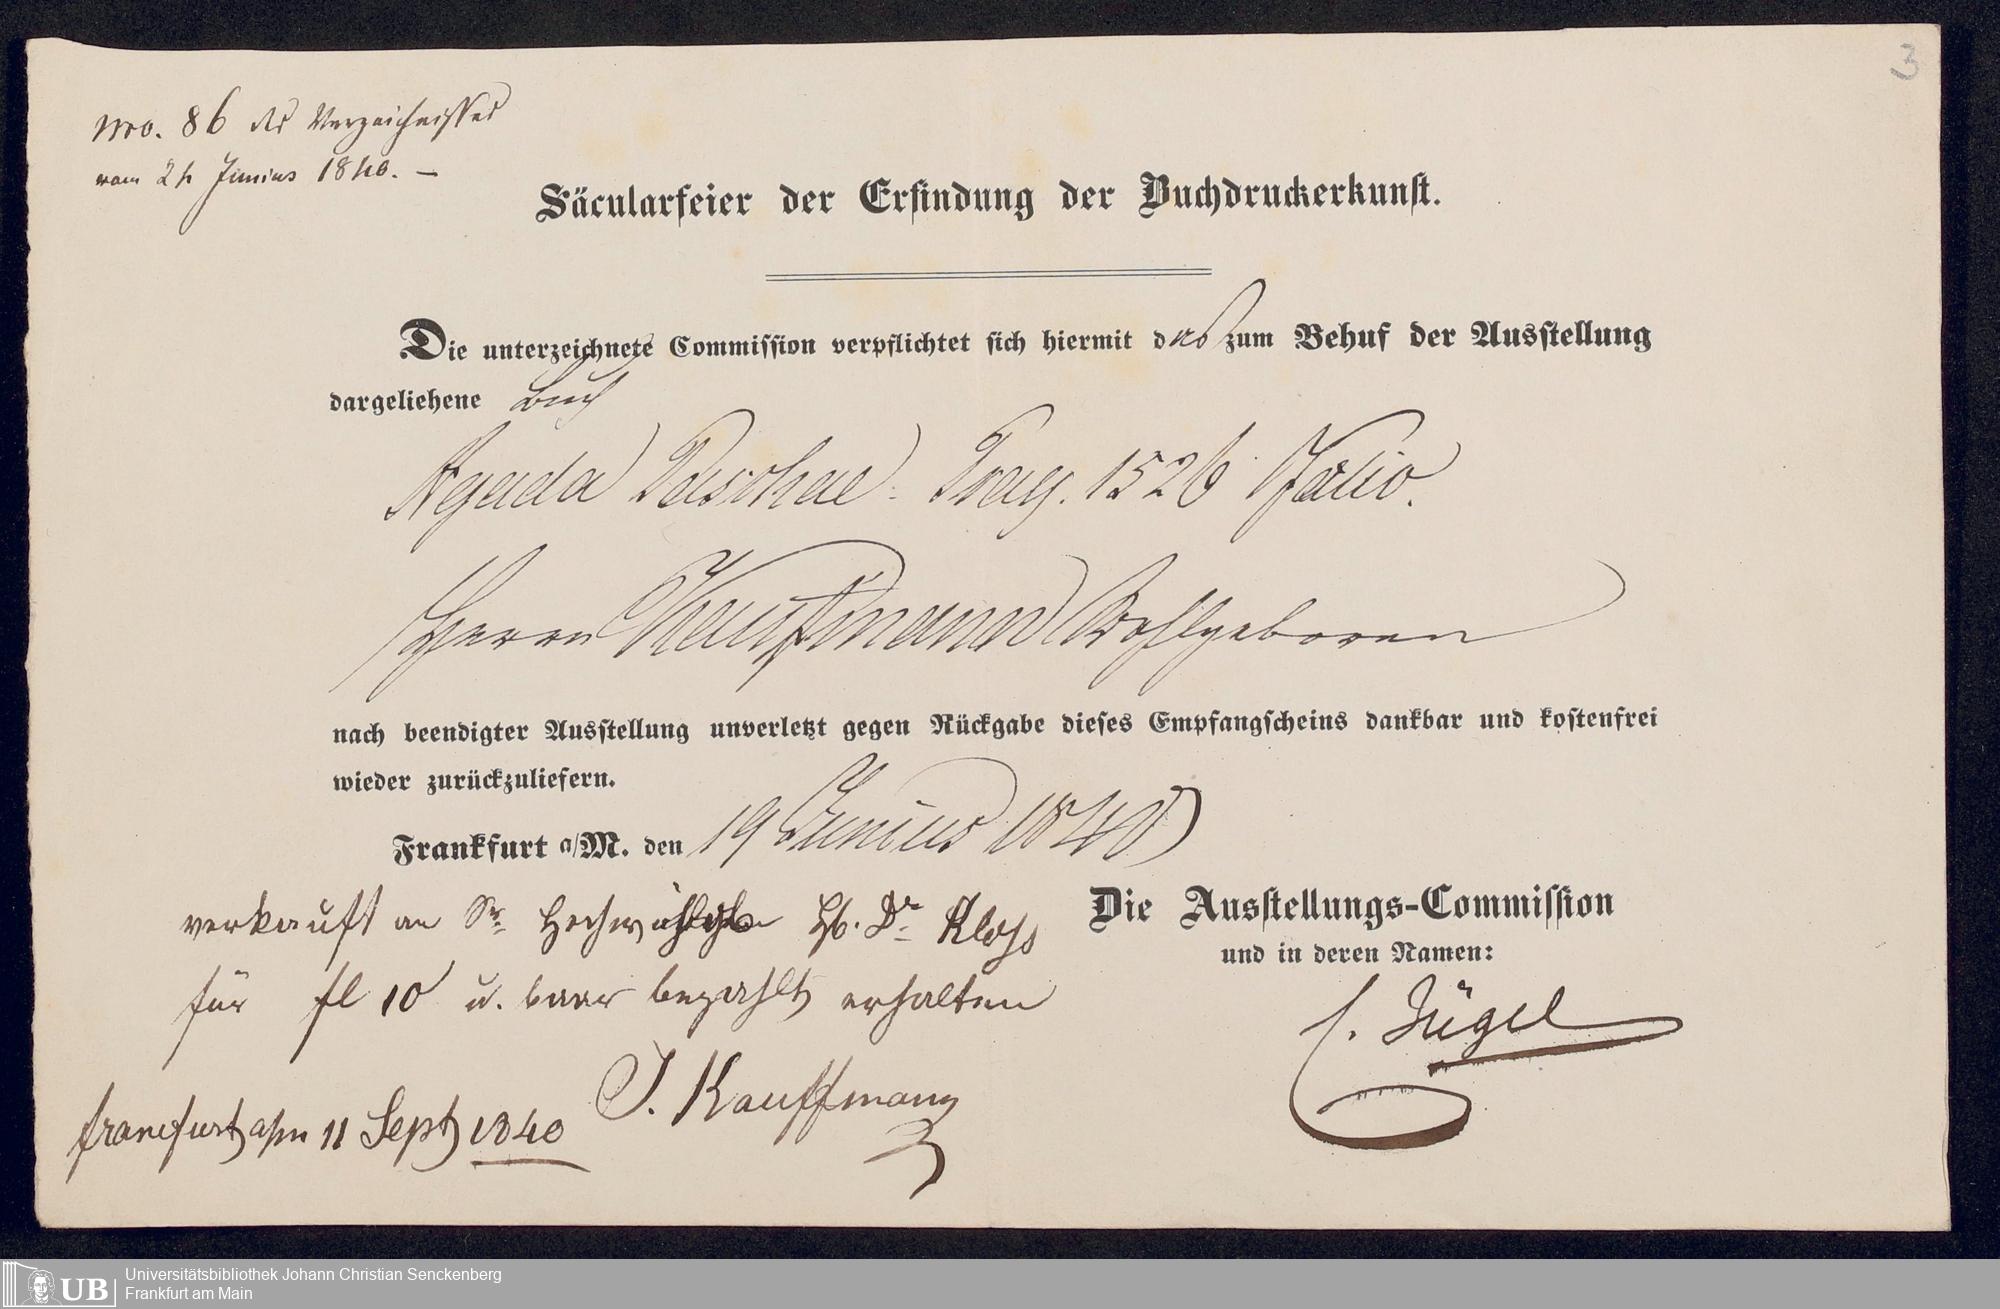 3
Nro. 86 des Verzeichnisses
vom 24 Junius 1840. –
Säcularfeier der Erfindung der Buchdruckerkunst.
Die unterzeichnete Commission verpflichtet sich hiermit das zum Behuf der Ausstellung
dargeliehene Buch
Agada Paschae. Prag. 1526 Folio.
Herrn Kauffmann Wohlgeboren
nach beendigter Ausstellung unverletzt gegen Rückgabe dieses Empfangscheins dankbar und kostenfrei
wieder zurückzuliefern.
Frankfurt a/M. den 19 Junius 1840
verkauft an Sr. H. Dr. Kloss
für fl 10 u. baar bezahlt erhalten
Die Ausstellungs-Commission
und in deren Namen:
C. Jügel
J. Kauffmann
Francfurt a/m 11 Sept 1840
UB
Universitätsbibliothek Johann Christian Senckenberg
Frankfurt am Main